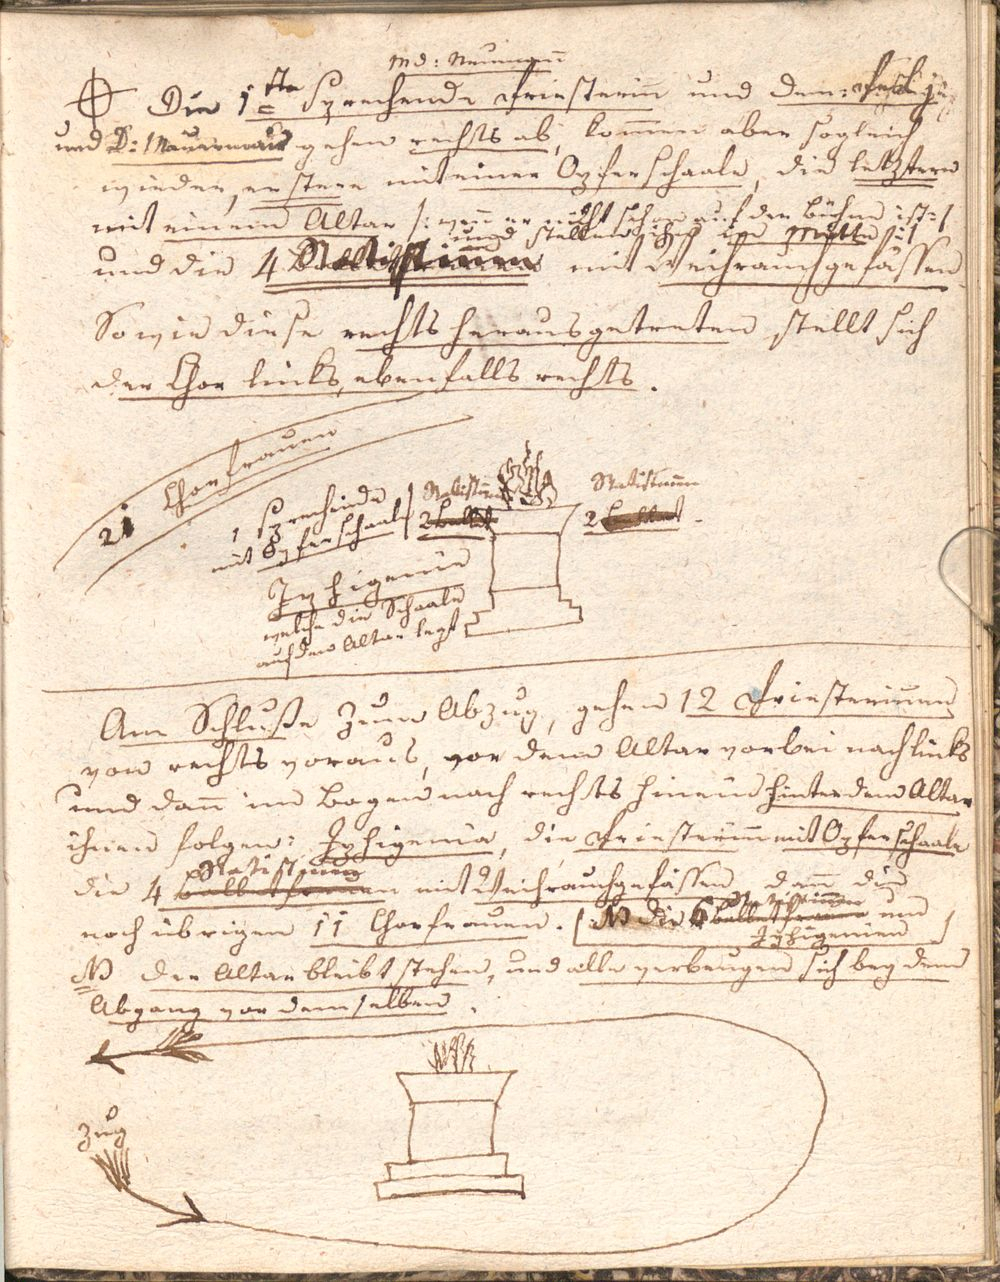 Md: Neumann
Die 1ste sprechende Priesterin und Dem:
und D: gehen rechts ab, kommen aber sogleich
wieder, erstere mit einer Opferschaale, die letztern
mit einem Altar /: wenn er nicht schon auf der Bühne ist :/
und stellen ihn in Mitte
und die 4 Statistinnen mit Weihrauchgefässen
Sowie diese rechts herausgetreten stellt sich
der Chor links, ebenfalls rechts.
Chorfrauen
21
1 sprechende
mit Opferschaale
Statistinnen
2
Statistinnen
2
Iphigenie
welche die Schaale
auf den Altar legt
Am Schluße zum Abzug, gehen 12 Priesterinnen
von rechts voraus, vor dem Altar vorbei nach links
und dann im Bogen nach rechts hinein hinter dem Altar
ihnen folgen: Iphigenia, die Priesterinn mit Opferschaale
Statistinnen
die 4 mit Weihrauchgefässen, dann die
noch übrigen 11 Chorfrauen. NB die 6 Statistinnen und
Iphigenien
NB der Altar bleibt stehen, und alle verbeugen sich bey dem
Abgang vor demselben.
Zug